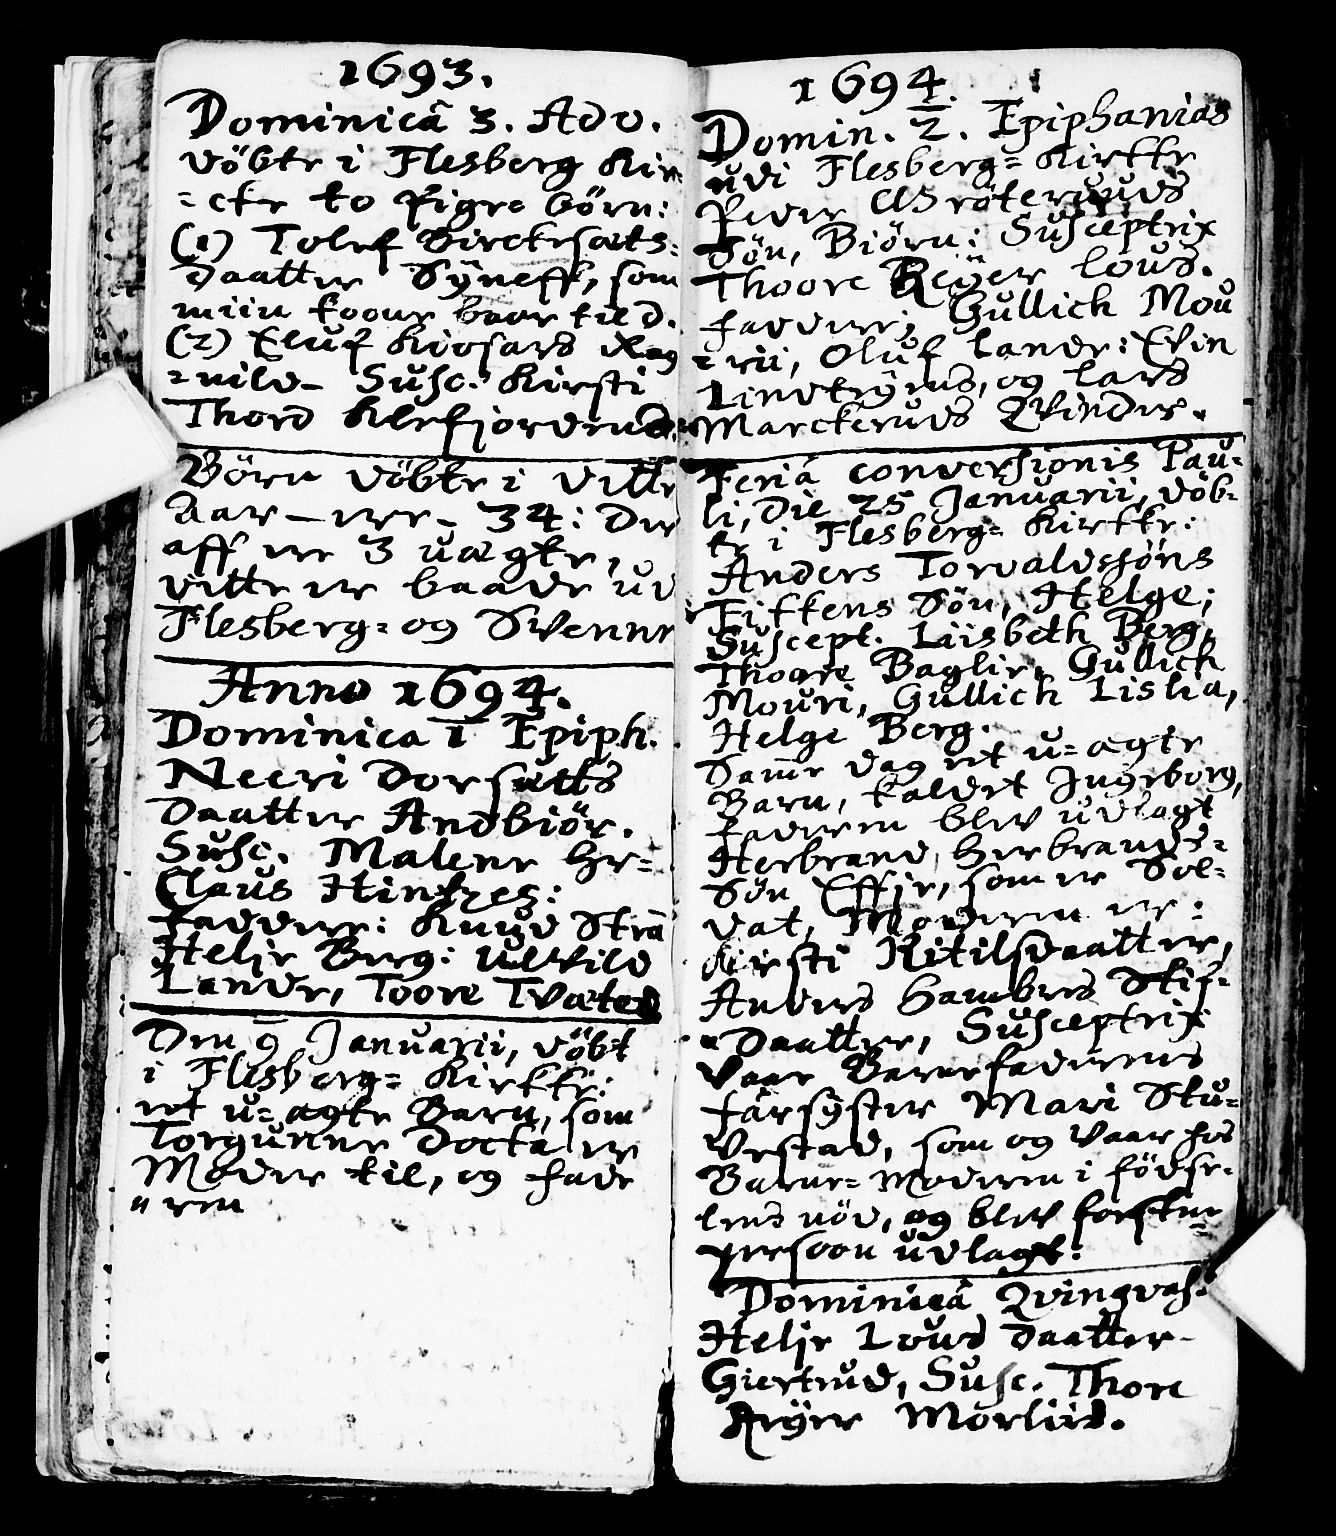 1693.
Dominicâ 3. Adv.
döbte i Flesberg Kir-
=cke to Pige= börn:
(1) Tolef Birckesæts-
Daatter Sÿneff, som
miin koone baar til d.
(2) Eluf Kiosards Rag
=nild- Susc. Kirsti
Thord Klefjorderud.
Börn döbte i dette
Aar - ere - 34: Der
aff ere 3 uægte,
dette er baade ud
Flesberg= og Svenne
Anno 1694.
Dominica 1 Epiph.
Neeri Dorsætts
Daatter Andbiör.
Susc. Malene Hr=
Claus Hintzes:
Faddere: Knud Strā
Helje Berg: Ulvild
Lande, Toore Tvæted
Den 9 Januarii, döbt
i Flesberg= Kirkke:
et u=ægte Barn, som
Torgunne Docta er
Moder til, og fade
=ren
1694.
Domin. 2. Epiphanias
udi Flesberg= Kirkke
Peder Gröteruds
Sön, Biörn: Susceptrix
Thoore Reÿer Lous.
faddere; Gullich Mou
=rii, Oluf Lande: Evin
Lindtrÿms, og Lars
Marckeruds Qvinder.
Feriâ conversionis Pau-
li, Die 25 Januarii, döb-
te i Flesberg= Kirkke:
Anders Torvaldssöns
Fikkens Sön, Helge;
Suscept. Liisbeth Berg,
Thoore Baglie, Gullich
Mouri, Gullich Lislia,
Helge Berg.
Same dag et u=ægte
Barn, kaldet Ingeborg,
faderen blev udlagt
Herbrand Herbrands=
Sön Effje, som er Sol-
dat, Moderen er:
Kirsti Kitilsdaatter,
Anders Hambres Stif-
=Daatter, Susceptrix
vaar Barnefaderens
farsÿster Mari Stu-
vestad, som og vaar hos
Barne= Moderen i födse-
lens nöd, og blev forskne
persoon udlagt:
Dominicâ Qvinqvas.
Helje Lous Daatter-
Giertrud, Susc. Thore
Reÿer Morliid.